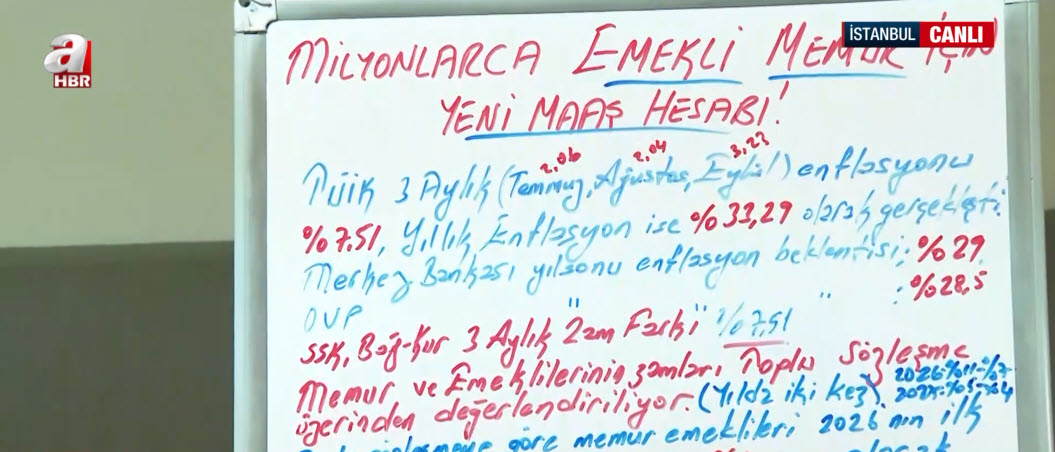 a
HBR
İSTANBUL CANLI
MİLYONLARCA EMEKLİ MEMUR İÇİN
YENİ MAAŞ HESABI!
2,06 2,04 3,23
TÜİK 3 Aylık (Temmuz, Ağustos, Eylül) enflasyonu
%7.51, Yıllık Enflasyon ise %33,29 olarak gerçekleşti.
Merkez Bankası yılsonu enflasyon beklentisi; %29
OVP " " " : %28,5
SSK, Bağ-Kur 3 Aylık Zam Farkı %7,51
Memur ve Emeklilerinin zamları Toplu Sözleşme
üzerinden değerlendiriliyor. (Yılda iki kez) 2026-%11-%7
2027-%5-%4
göre memur emeklileri 2026'nın ilk